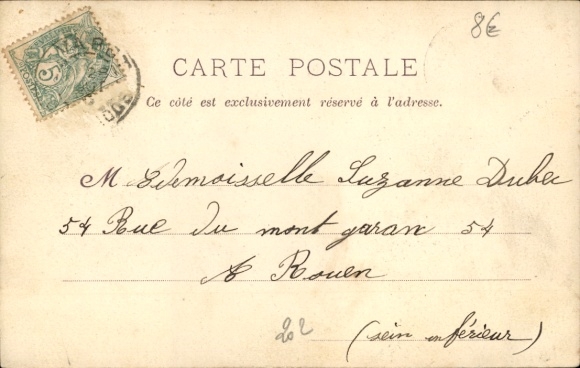 8€
5
CARTE POSTALE
Ce côté est exclusivement réservé à l'adresse.
Mademoisselle Suzanne Dubec
54 Rue du mont garanx 54
A Rouen
202
(sein enférieur)